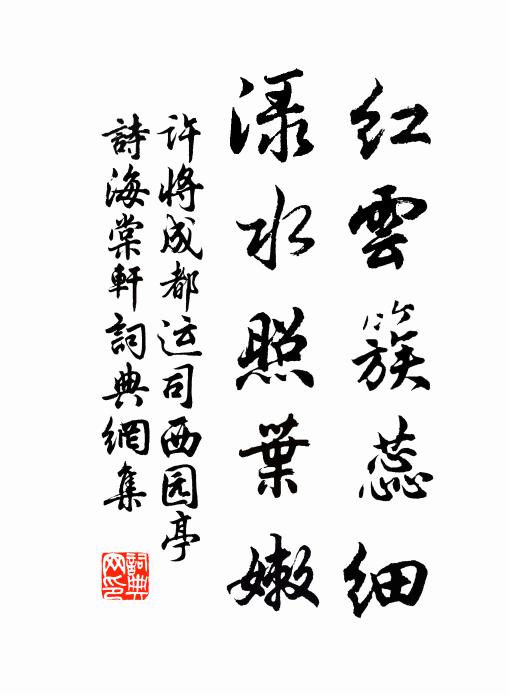 红雲簇蕊細
渌水照葉嫩
许將成都运司西园亭
詩海棠軒詞典網集
詞典網印